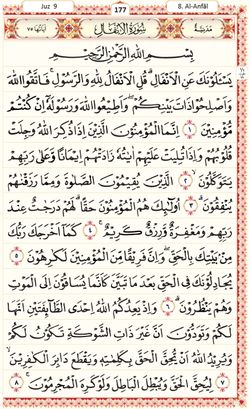 Juz 9
177
8. Al-Anfāl
مَدَنِيَّة
سُورَةُ الْاَنْفَالِ
بِسْمِ اللهِ الرَّحْمٰنِ الرَّحِيْمِ
يَسْـَٔلُوْنَكَ عَنِ الْاَنْفَالِۗ قُلِ الْاَنْفَالُ لِلّٰهِ وَالرَّسُوْلِۚ فَاتَّقُوا اللهَ
وَاَصْلِحُوْا ذَاتَ بَيْنِكُمْ ۖ وَاَطِيْعُوا اللهَ وَرَسُوْلَهٗٓ اِنْ كُنْتُمْ
مُّؤْمِنِيْنَ ١ اِنَّمَا الْمُؤْمِنُوْنَ الَّذِيْنَ اِذَا ذُكِرَ اللهُ وَجِلَتْ
قُلُوْبُهُمْ وَاِذَا تُلِيَتْ عَلَيْهِمْ اٰيٰتُهٗ زَادَتْهُمْ اِيْمَانًا وَّعَلٰى رَبِّهِمْ
يَتَوَكَّلُوْنَ ٢ الَّذِيْنَ يُقِيْمُوْنَ الصَّلٰوةَ وَمِمَّا رَزَقْنٰهُمْ
يُنْفِقُوْنَ ٣ اُولٰۤىِٕكَ هُمُ الْمُؤْمِنُوْنَ حَقًّاۗ لَهُمْ دَرَجٰتٌ عِنْدَ
رَبِّهِمْ وَمَغْفِرَةٌ وَّرِزْقٌ كَرِيْمٌ ٤ كَمَآ اَخْرَجَكَ رَبُّكَ
مِنْۢ بَيْتِكَ بِالْحَقِّ وَاِنَّ فَرِيْقًا مِّنَ الْمُؤْمِنِيْنَ لَكٰرِهُوْنَ ٥
يُجَادِلُوْنَكَ فِى الْحَقِّ بَعْدَ مَا تَبَيَّنَ كَاَنَّمَا يُسَاقُوْنَ اِلَى الْمَوْتِ
وَهُمْ يَنْظُرُوْنَ ٦ وَاِذْ يَعِدُكُمُ اللهُ اِحْدَى الطَّاۤىِٕفَتَيْنِ اَنَّهَا
لَكُمْ وَتَوَدُّوْنَ اَنَّ غَيْرَ ذَاتِ الشَّوْكَةِ تَكُوْنُ لَكُمْ
وَيُرِيْدُ اللهُ اَنْ يُّحِقَّ الْحَقَّ بِكَلِمٰتِهٖ وَيَقْطَعَ دَابِرَ الْكٰفِرِيْنَ ٧
لِيُحِقَّ الْحَقَّ وَيُبْطِلَ الْبَاطِلَ وَلَوْ كَرِهَ الْمُجْرِمُوْنَ ٨